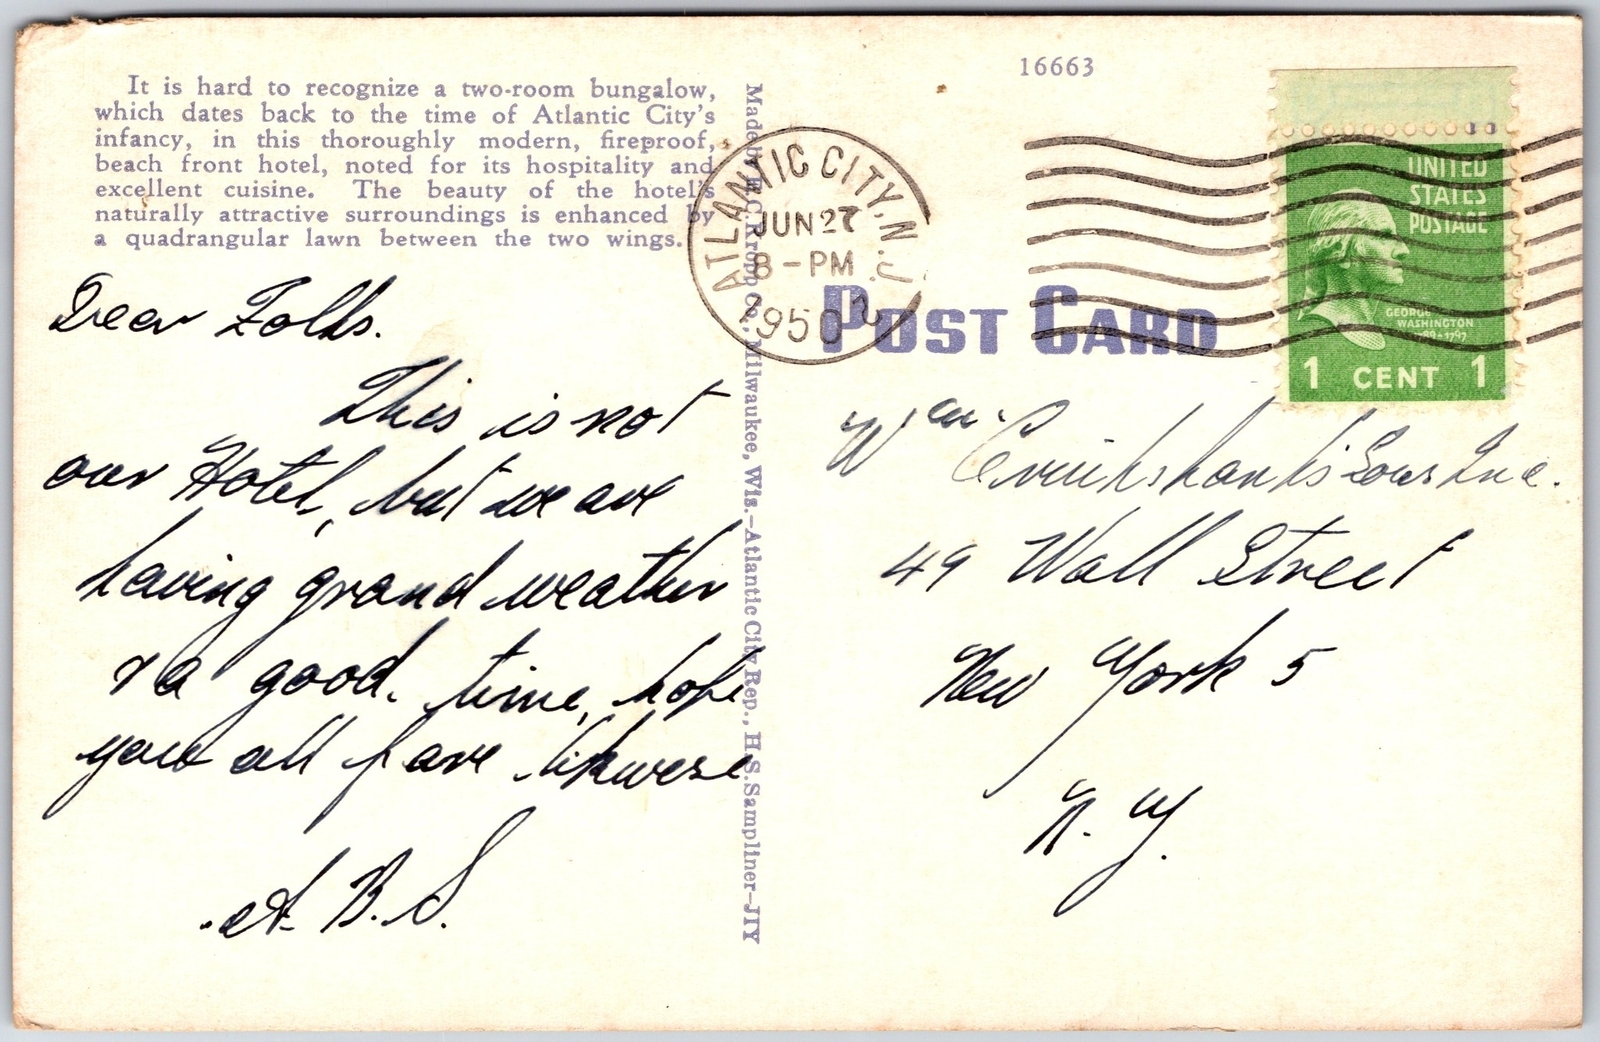 16663
It is hard to recognize a two-room bungalow,
which dates back to the time of Atlantic City's
infancy, in this thoroughly modern, fireproof,
beach front hotel, noted for its hospitality and
excellent cuisine. The beauty of the hotel's
naturally attractive surroundings is enhanced by
a quadrangular lawn between the two wings.
Made by E. C. Kropp Co., Milwaukee, Wis.-Atlantic City Rep., H.S.Sampliner-JIY
ATLANTIC CITY, N.J. 2
JUN 27
8-PM
1950
UNITED
STATES
POSTAGE
GEORGE
WASHINGTON
1789-1797
1 CENT 1
POST CARD
Dear Folks.
This is not
our Hotel, but we are
having grand weather
& a good time, hope
you all have likewese
A. B. S.
Wm Cruikshank's Sons Inc.
49 Wall Street
New York 5
N. Y.